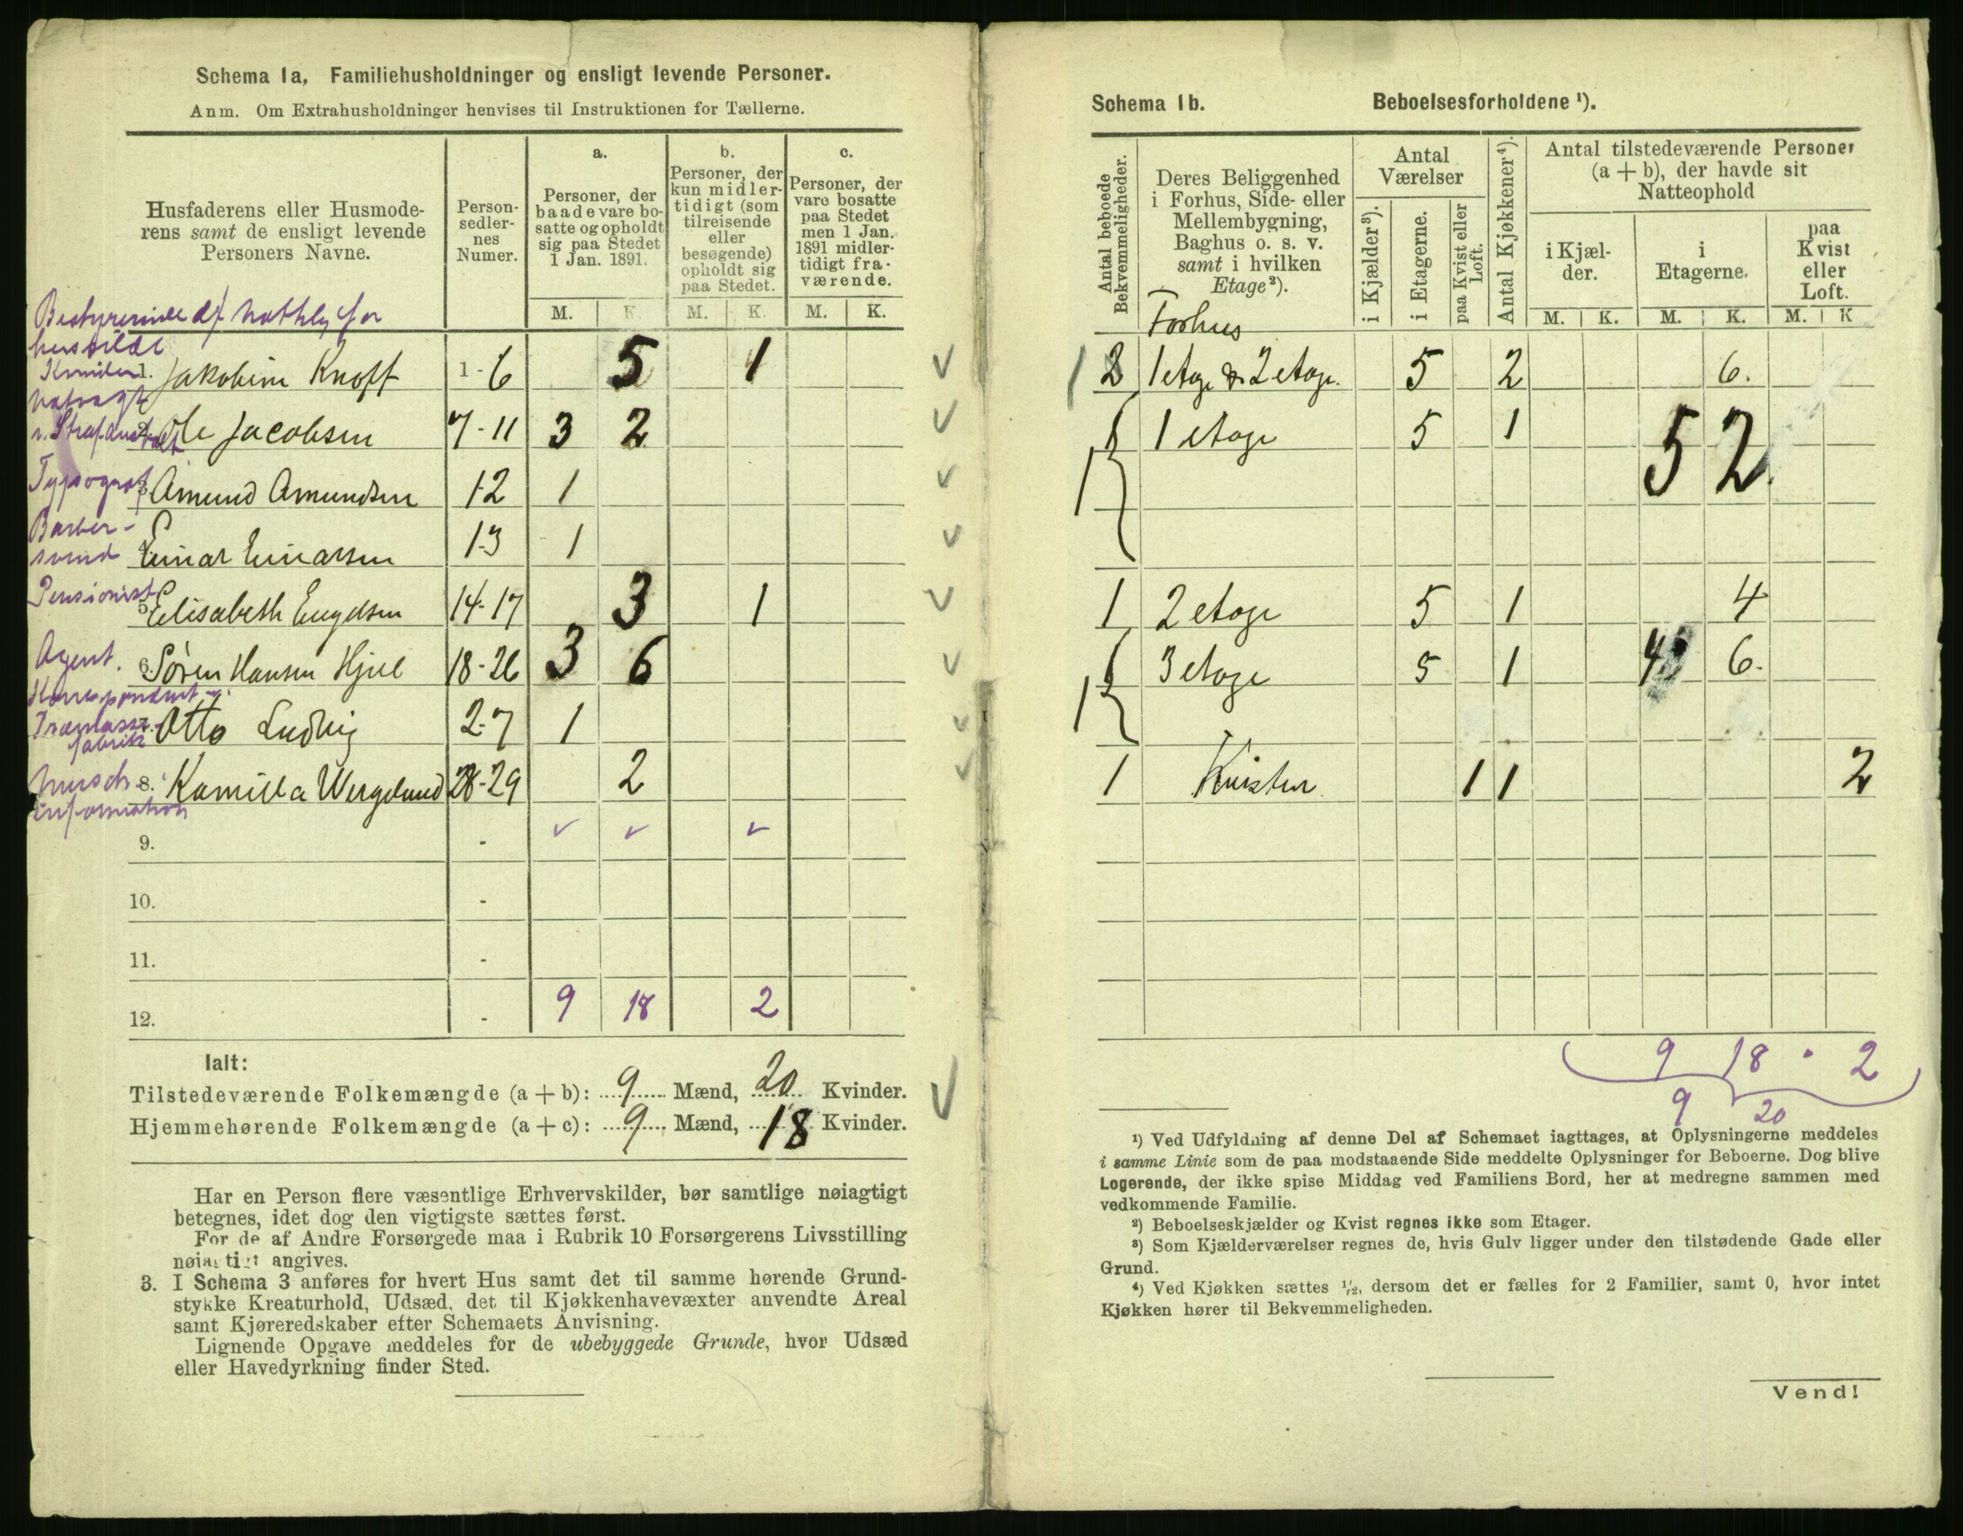 Schema 1a, Familiehusholdninger og ensligt levende Personer.
Anm. Om Extrahusholdninger henvises til Instruktionen for Tællerne.
Husfaderens eller Husmoderens samt de ensligt levende Personers Navne.
Personsedlernes Numer.
a. Personer, der baade vare bosatte og opholdt sig paa Stedet 1 Jan. 1891.
b. Personer, der kun midlertidigt (som tilreisende eller besøgende) opholdt sig paa Stedet.
c. Personer, der vare bosatte paa Stedet men 1 Jan. 1891 midlertidigt fraværende.
M. K. M. K. M. K.
1. Jakobine Knoff 1-6 5 1
2. Ole Jacobsen 7-11 3 2
Typograf 3. Amund Amundsen 12 1
Barbersvend 4. Einar Einarsen 13 1
Pensionist 5. Elisabeth 14-17 3 1
Agent. 6. Søren Hansen 18-26 3 6
Korrespondent
fabrik 7. Otto Ludvig 27 1
8. Kamilla Wergeland 28-29 2
information
9. - ✓ ✓ ✓
10. -
11. -
12. - 9 18 2
Ialt:
Tilstedeværende Folkemængde (a + b): 9 Mænd, 20 Kvinder.
Hjemmehørende Folkemængde (a + c): 9 Mænd, 18 Kvinder.
Har en Person flere væsentlige Erhvervskilder, bør samtlige nøiagtigt
betegnes, idet dog den vigtigste sættes først.
For de af Andre Forsørgede maa i Rubrik 10 Forsørgerens Livsstilling
nøiagtigt angives.
3. I Schema 3 anføres for hvert Hus samt det til samme hørende Grund-
stykke Kreaturhold, Udsæd, det til Kjøkkenhavevæxter anvendte Areal
samt Kjøreredskaber efter Schemaets Anvisning.
Lignende Opgave meddeles for de ubebyggede Grunde, hvor Udsæd
eller Havedyrkning finder Sted.
Schema 1b. Beboelsesforholdene ¹).
Antal beboede Bekvemmeligheder.
Deres Beliggenhed i Forhus, Side- eller Mellembygning, Baghus o. s. v. samt i hvilken Etage ²).
Antal Værelser
i Kjælder ³).
i Etagerne.
paa Kvist eller Loft.
Antal Kjøkkener ⁴).
Antal tilstedeværende Personer (a + b), der havde sit Natteophold
i Kjælder.
i Etagerne.
paa Kvist eller Loft.
M. K. M. K. M. K
Forhus
1 2 1 etage & 2 etage. 5 2 6.
1 1 etage 5 1 5 2.
1
1 2 etage 5 1 4
1 3 etage 5 1 4 6.
1
1 Kvisten 1 1 2
9 18 2
9 20
¹) Ved Udfyldning af denne Del af Schemaet iagttages, at Oplysningerne meddeles
i samme Linie som de paa modstaaende Side meddelte Oplysninger for Beboerne. Dog blive
Logerende, der ikke spise Middag ved Familiens Bord, her at medregne sammen med
vedkommende Familie.
²) Beboelseskjælder og Kvist regnes ikke som Etager.
³) Som Kjælderværelser regnes de, hvis Gulv ligger under den tilstødende Gade eller
Grund.
⁴) Ved Kjøkken sættes ¹/₂, dersom det er fælles for 2 Familier, samt 0, hvor intet
Kjøkken hører til Bekvemmeligheden.
Vend!